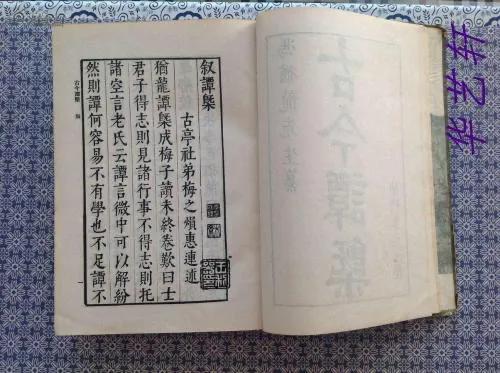 叙譚槩
古亭社弟梅之熉惠連述
猶龍譚槩成梅子讀未終卷歎曰士
君子得志則見諸行事不得志則托
諸空言老氏云譚言微中可以解紛
然則譚何容易不有學也不足譚不
古今譚概
古今譚槩
馮猶龍先生纂